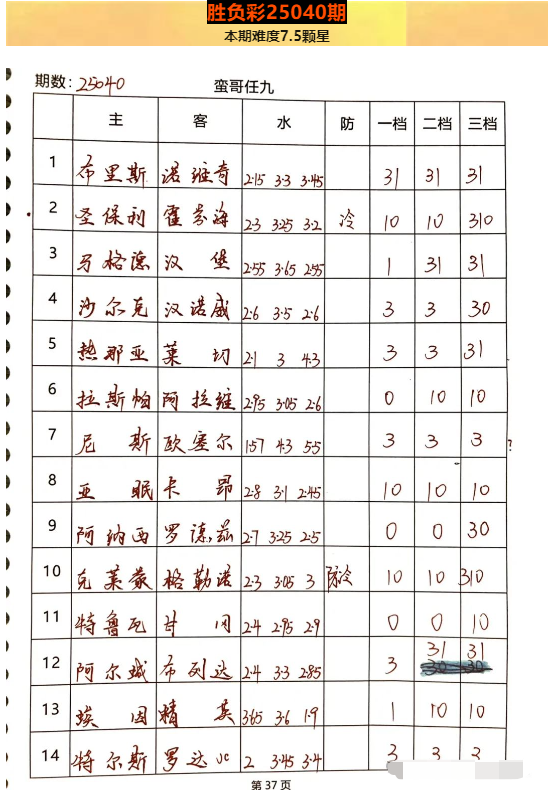 胜负彩25040期
本期难度7.5颗星
期数: 25040 蛮哥任九
主 客 水 防 一档 二档 三档
1 布里斯 诺维奇 2.15 3.3 3.45 31 31 31
2 圣保利 霍芬海 2.3 3.25 3.2 冷 10 10 310
3 马格德 汉堡 2.55 3.65 2.55 1 31 31
4 沙尔克 汉诺威 2.6 3.5 2.6 3 3 30
5 热那亚 莱切 2.1 3 4.3 3 3 31
6 拉斯帕 阿拉维 2.95 3.05 2.6 0 10 10
7 尼斯 欧塞尔 1.57 4.3 5.5 3 3 3 ?
8 亚眠 卡昂 2.8 3.1 2.45 10 10 10
9 阿纳西 罗德兹 2.7 3.25 2.5 0 0 30
10 克莱蒙 格勒诺 2.3 3.05 3 防冷 10 10 310
11 特鲁瓦 甘冈 2.4 2.95 2.9 0 0 10
12 阿尔城 布列达 2.4 3.3 2.85 3 31 31
30 30
13 埃因 精英 3.65 3.6 1.9 1 10 10
14 特尔斯 罗达JC 2 3.45 3.4 3 3 3
第 37 页